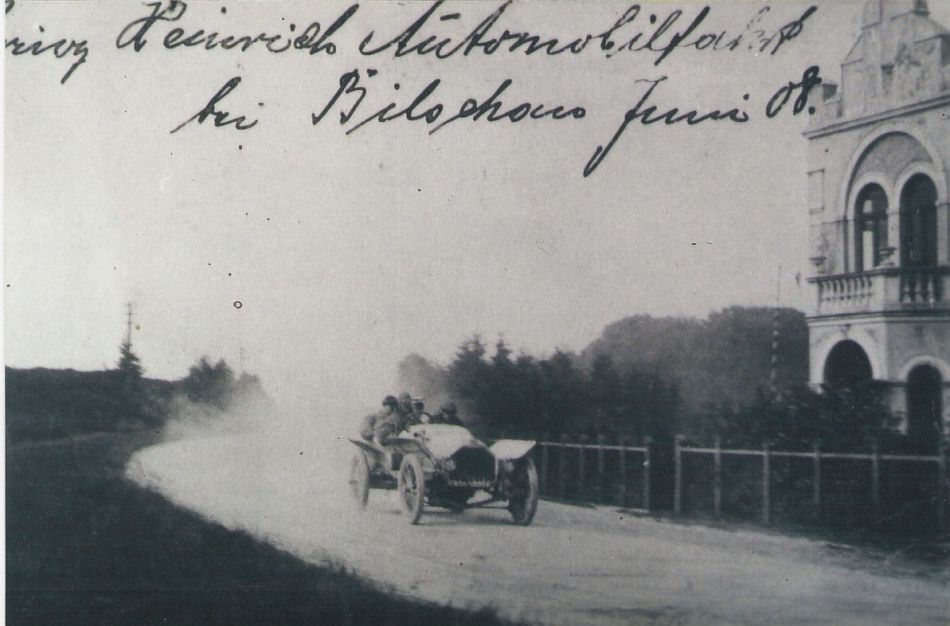 Heinrich Automobilfahrt
bei Bilschau Juni 08.